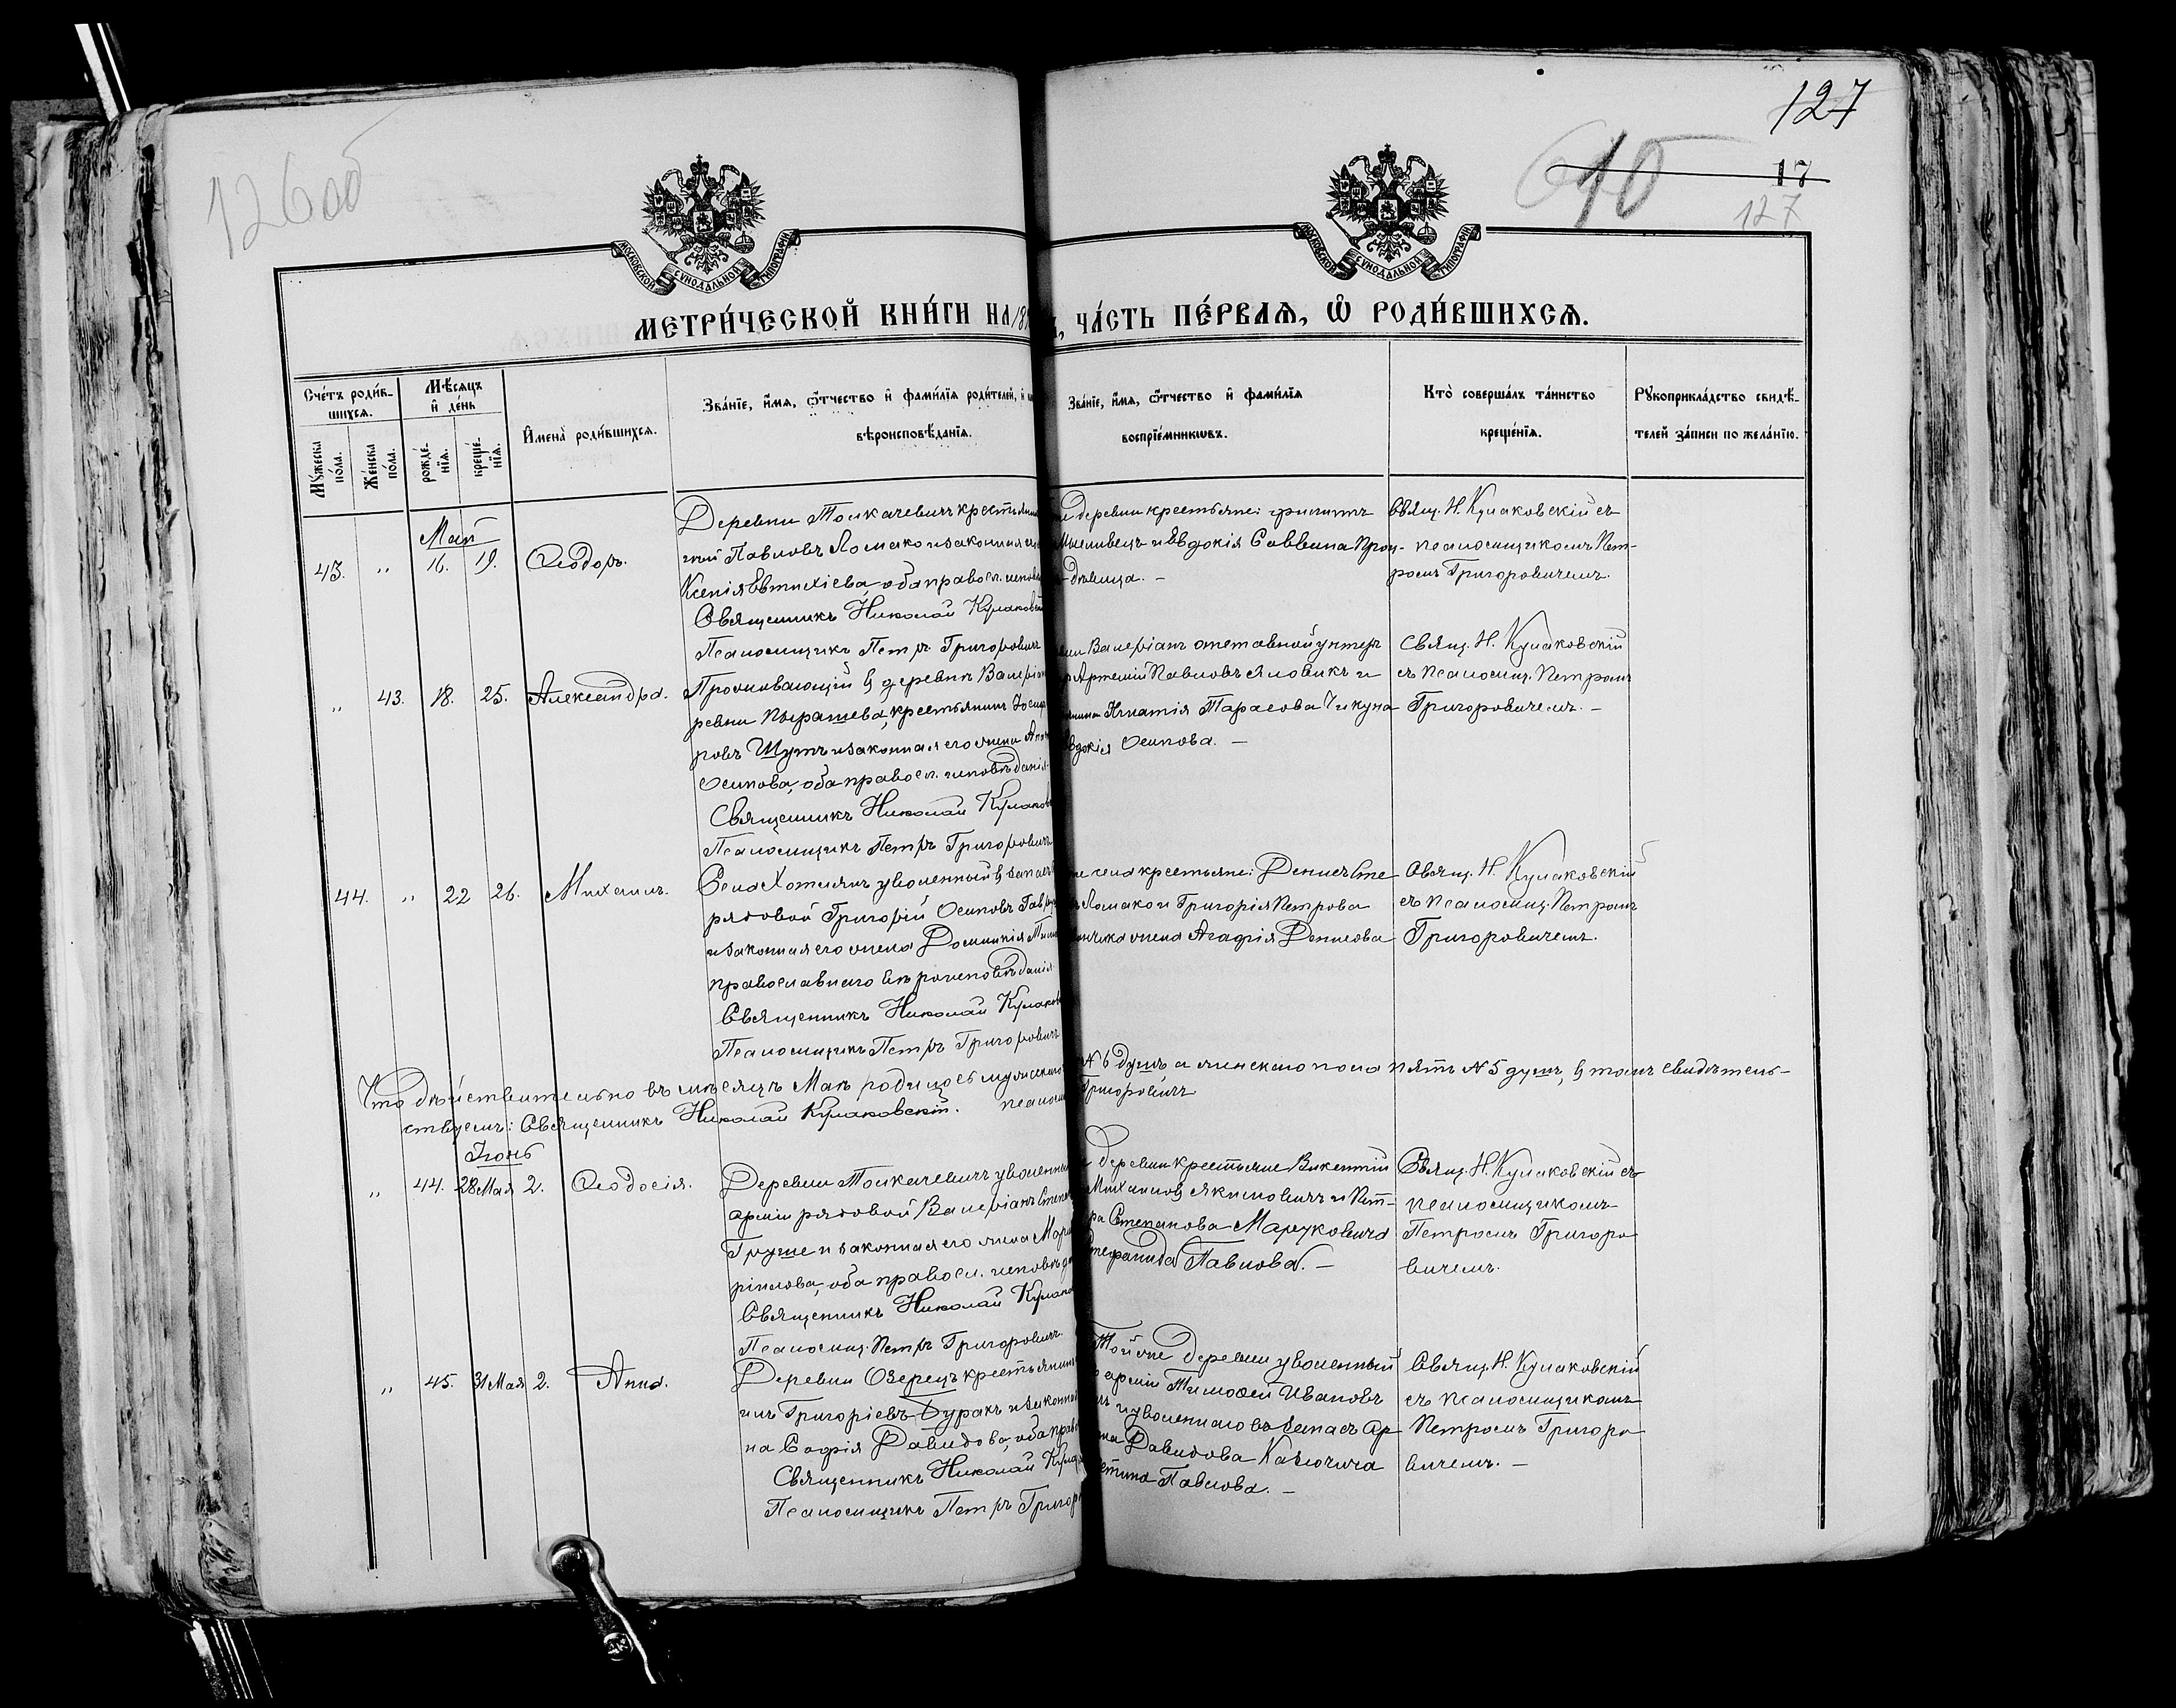 126 об
127
17
127
МОСКОВСКОЙ СѴНОДАЛЬНОЙ ТИПОГРАФІИ
МОСКОВСКОЙ СѴНОДАЛЬНОЙ ТИПОГРАФІИ
МЕТРИ́ЧЕСКОЙ КНИ́ГИ НА 18
ЧА́СТЬ ПЕ́РВАѦ, Ѡ РОДИ́ВШИХСѦ.
Сче́тъ роди́в-
шихсѧ.
Мѣ́сѧцъ
и де́нь
Мꙋ́жеска по́ла.
Же́нска по́ла.
рожде́-нїѧ.
креще́-нїѧ.
Имена̀ роди́вшихсѧ.
Зва́нїе, и́мѧ, ѻ́тчество и фами́лїѧ роди́телей, и
вѣроисповѣ́данїѧ.
Зва́нїе, и́мѧ, ѻ́тчество и фами́лїѧ
воспрїе́мникѡвъ.
Кто̀ соверша́лъ та́инство
креще́нїѧ.
Рꙋкоприкла́дство свидѣ́-
телей за́писи по жела́нїю.
Май
43. " 16. 19. Ѳеодоръ.
Деревни Толкачевичъ крестьянин
Павловъ Ломако и законная
Ксенія Евтихіева, оба правосл. испов
Священникъ Николай Кулаковскі
Псаломщикъ Петръ Григоровичъ
деревни крестьяне: Филиппъ
Мысливецъ и Евдокія Саввина Проц-
девица. –
Свящ. Н. Кулаковскій съ
псаломщикомъ Пет-
ромъ Григоровичемъ.
" 43. 18. 25. Александра.
Проживающій въ деревнѣ Валеріан
ревни Пырашева, крестьянинъ
ровъ Шутъ и законная его жена
Осипова, оба правосл. исповѣданія.
Священникъ Николай Кулаков
Псаломщикъ Петръ Григоровичъ
Валеріанъ отставной унтеръ
Артемій Павловъ Яловикъ и
Игнатія Тарасова Чикуна
Евдокія Осипова. –
Свящ. Н. Кулаковскій
съ псаломщ. Петромъ
Григоровичемъ. –
44. " 22 26. Михаилъ.
Села Хотлянъ уволенный въ запасъ
рядовой Григорій Осиповъ Гавр
и законная его жена Домникія
православнаго вѣроисповѣданія.
Священникъ Николай Кулаков
Псаломщикъ Петръ Григоровичъ
села крестьяне: Денисъ Сте
Ломако и Григорія Петрова
жена Агафія Денисова
Свящ. Н. Кулаковскій
съ псаломщ. Петромъ
Григоровичемъ.
Что дѣйствительно въ мѣсяцѣ Маѣ родилось мужескаго
№ 6 душъ а женскаго пола пять № 5 душъ, въ томъ свидѣтель-
ствуемъ: Священникъ Николай Кулаковскій. псалом
Григоровичъ
Іюнь
" 44. 28 Мая 2. Ѳеодосія.
Деревни Толкачевичъ уволенный
арміи рядовой Валеріанъ Степ
Груше и законная его жена Мар
ріилова, оба правосл. исповѣд
Священникъ Николай Кулаков
Псаломщ. Петръ Григоровичъ.
деревни крестьяне Викентій
Михаиловъ Якимовичъ и Пет-
ра Степанова Маруковича
Стефанида Павлова. –
Свящ. Н. Кулаковскій съ
псаломщикомъ
Петромъ Григоро
вичемъ.
" 45. 31 Мая 2. Анна.
Деревни Озерецъ крестьянин
Григоріевъ Буракъ и законная
на Софія Давидова, оба прав
Священникъ Николай Кулак
Псаломщикъ Петръ Григор
Той же деревни уволенный
арміи Тимоѳей Ивановъ
и уволеннаго въ запасъ ар
Давидова Казючица
Павлова. –
Свящ. Н. Кулаковскій
съ псаломщикомъ
Петромъ Григоро
вичемъ. –